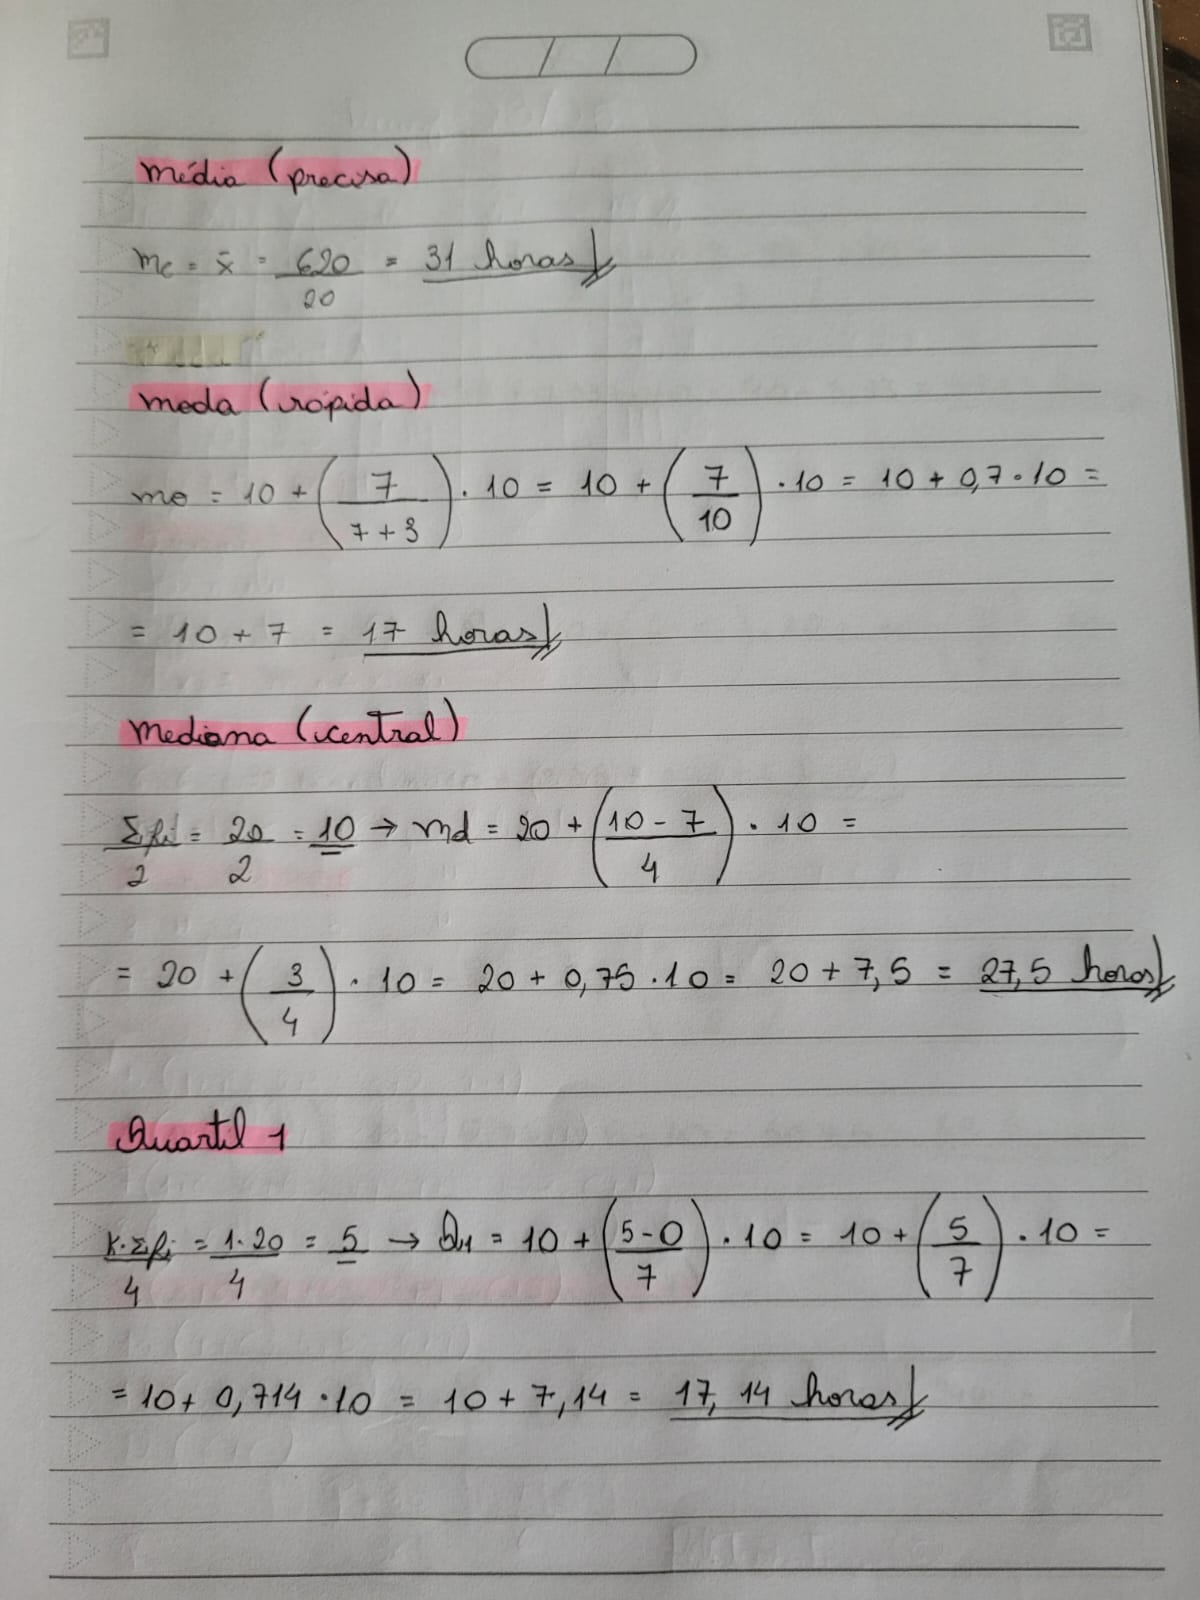 Média (precisa)
Me = x̄ = 620/20 = 31 horas
Moda (rápida)
Mo = 10 + (7/(7 + 3)) · 10 = 10 + (7/10) · 10 = 10 + 0,7 · 10 =
= 10 + 7 = 17 horas
Mediana (central)
Σfi/2 = 20/2 = 10 → Md = 20 + ((10 - 7)/4) · 10 =
= 20 + (3/4) · 10 = 20 + 0,75 · 10 = 20 + 7,5 = 27,5 horas
Quartil 1
K·Σfi/4 = 1·20/4 = 5 → Q1 = 10 + ((5-0)/7) · 10 = 10 + (5/7) · 10 =
= 10 + 0,714 · 10 = 10 + 7,14 = 17,14 horas